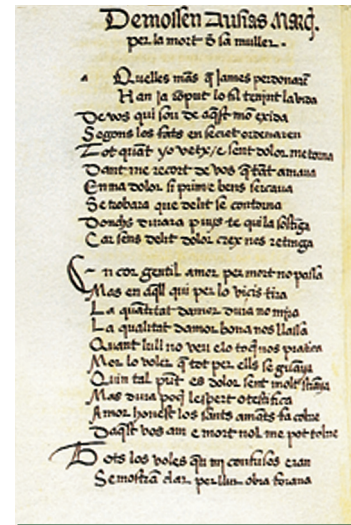 De mossen Ausias Marq̃.
per la mort d̃ sa muller.
Aquelles mãs q̃ james perdonarẽ
Han ja rõput lo fil tenint la vida
De vos qui sou de aq̃st mõ exida
Segons los fats en secret ordenaren
Tot quãt yo vetx / e sent dolor me torna
Dant me recort de vos q̃ tant amaua
En ma dolor si prim e bens sercaua
Se trobara que delit se contorna
Donchs durara puys te qui la sostinga
Car sens delit dolor crex nes retinga
En cor gentil amor per mort no passa
Mas en aq̃ll qui per lo vicis tira
La quãtitat damor dura no mira
La qualitat damor bona nos llassa
Quant lull no veu e lo toq̃ nos pratica
Mor lo voler q̃ tot per ells se guãya
Qui n tal pũt es dolor sent molt strãya
Mas dura poq̃ lespert o testifica
Amor honest los sants amãts fa colrre
Daq̃st vos am e mort nol me pot tolrre
Tots los voles qũ mi confusos eran
Se mostrã clar per llur obra forana